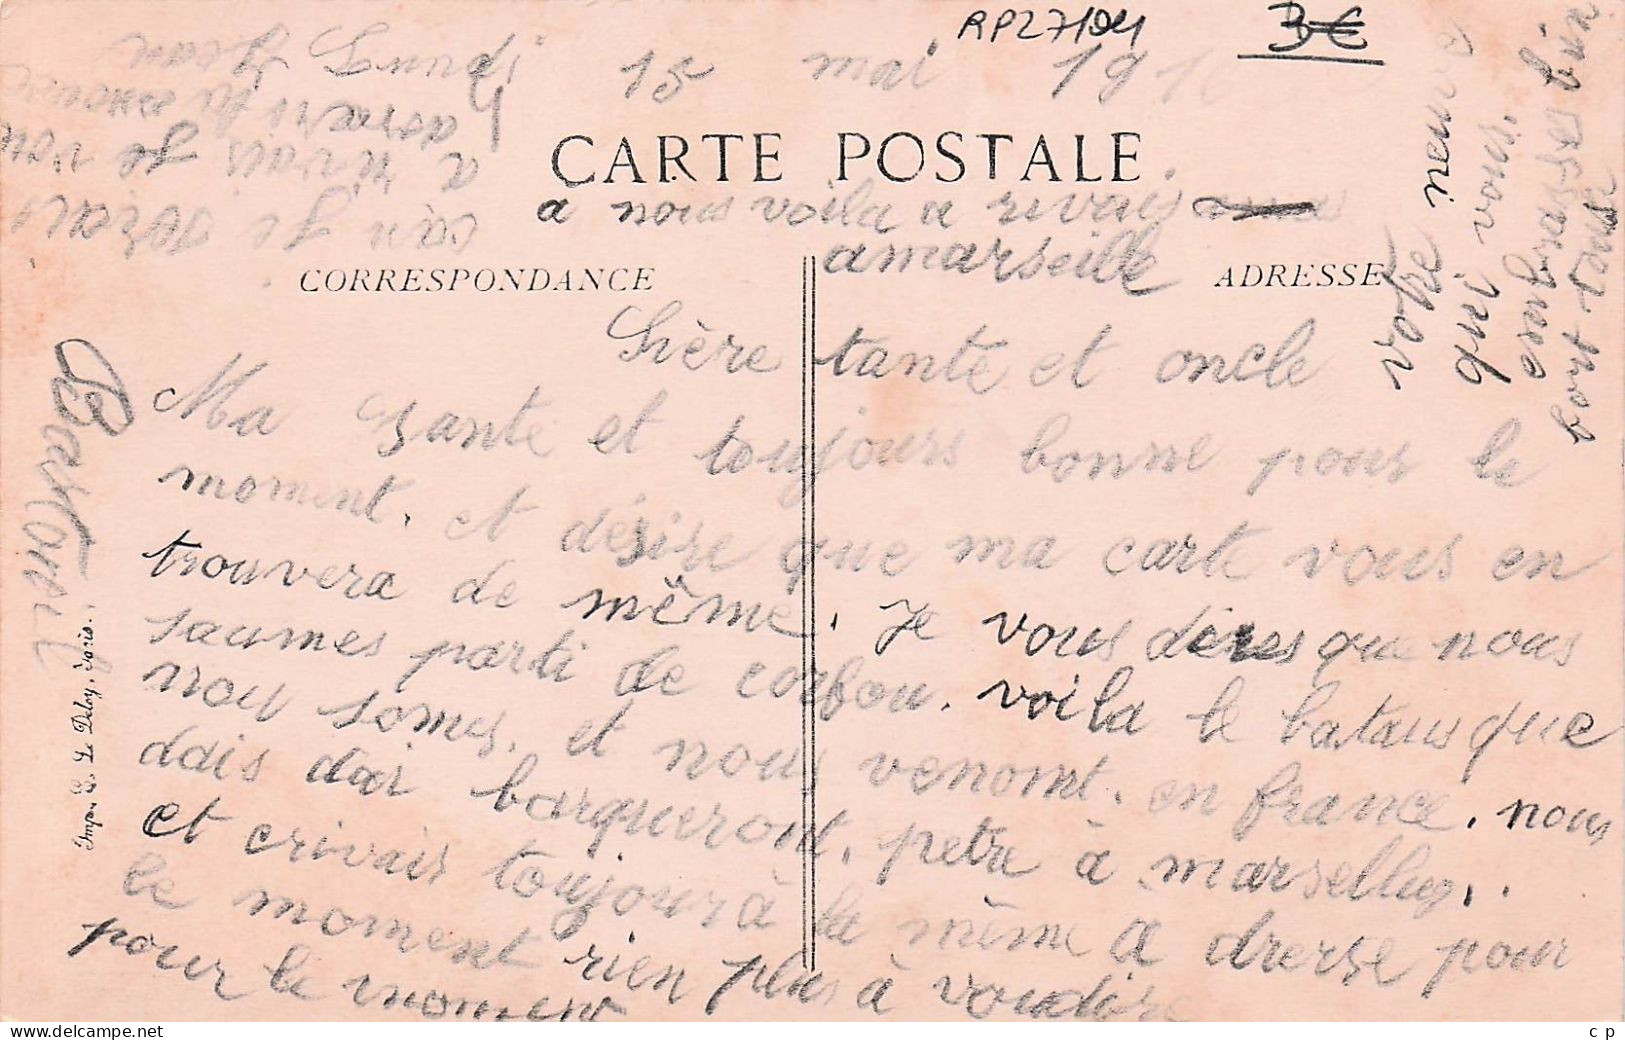 RP27104
3€
Lundi 15 mai 191
CARTE POSTALE
a nous voila a rivais
amarseille
CORRESPONDANCE
ADRESSE
Sière tante et oncle
Ma sante et toujours bonne pour le
moment. et désire que ma carte vous en
trouvera de même. Je vous dires que nous
saumes parti de corfou. voila le bataus que
nou somes. et nous venomt. en france. nous
dais dai barqueront. petre à marsellug..
et crivais toujour à la même a drerse pour
le moment rien plus à voudire
pour le moment
votre neuve
qui vous.
embrasse bien
bort tous
a rivais je vou
Imp. E. Le Deley, Paris.